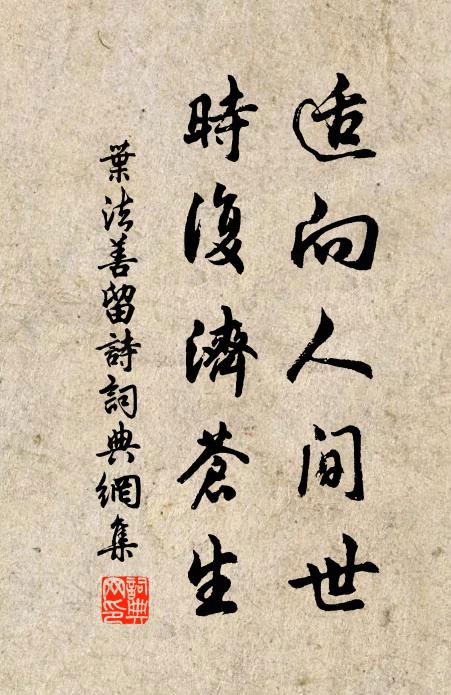 适向人间世
時復濟蒼生
葉法善留詩詞典網集
詞典
网印